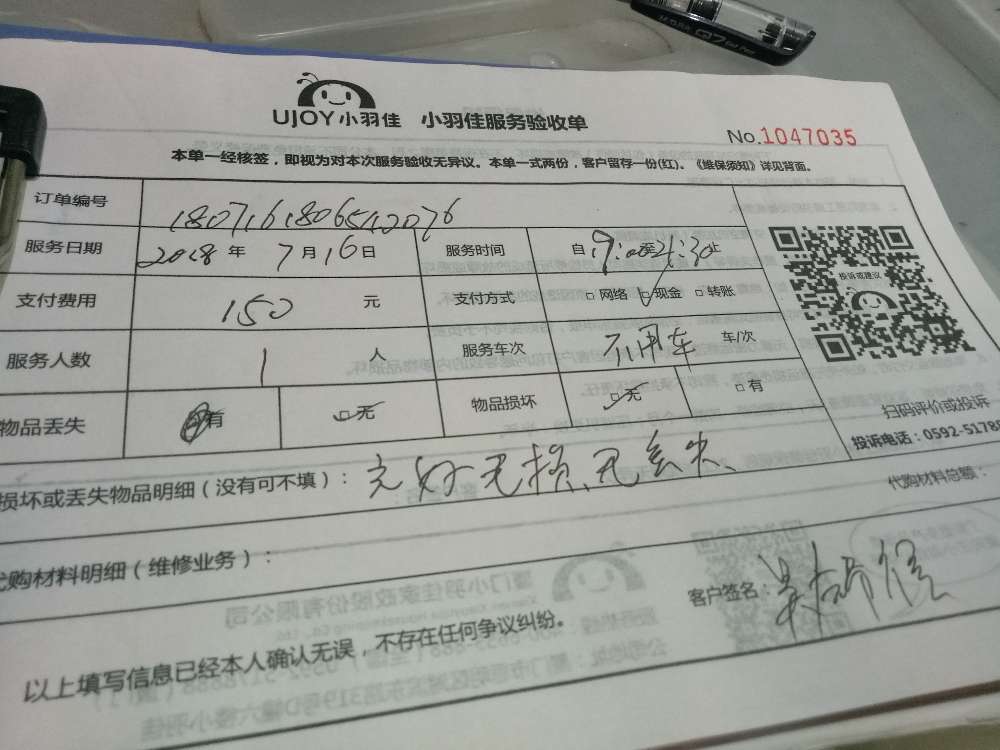 UJOY小羽佳 小羽佳服务验收单
No.1047035
本单一经核签，即视为对本次服务验收无异议。本单一式两份，客户留存一份(红)。《维保须知》详见背面。
订单编号
服务日期 2018 年 7 月 16 日 服务时间 自 19:00 至 21:30 止
支付费用 150 元 支付方式 □ 网络 □ 现金 □ 转账
投诉或建议
服务人数 1 人 服务车次 不用车 车/次
物品丢失 有 □ 无 物品损坏 □ 无 □ 有
扫码评价或投诉
投诉电话：0592-5178
损坏或丢失物品明细（没有可不填）： 完好无损、无丢失、
代购材料总额：
代购材料明细（维修业务）：
客户签名：
以上填写信息已经本人确认无误，不存在任何争议纠纷。